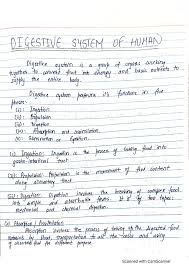 DIGESTIVE SYSTEM OF HUMAN
Digestive system is a group of organs working
together to convert food into energy and basic nutrients to
supply the entire body.
Digestive system performs its function in five
phases:
(i): Ingestion
(ii): Propulsion
(iii): Digestion
(iv): Absorption and assimilation
(v): Elimination or Egestion.
(i): Ingestion: Ingestion is the process of taking the food into
gastro-intestinal tract.
(ii): Propulsion: Propulsion is the movement of food content
along alimentary tract.
(iii): Digestion: Digestion involves the breaking of complex food
into simpler and absorbable forms. It is of two types:
mechanical and chemical digestion.
(iv) Absorption / Assimilation
Absorption involves the process of taking up the digested food
to the cells and using
of absorbed food for different purpose.
Scanned with CamScanner